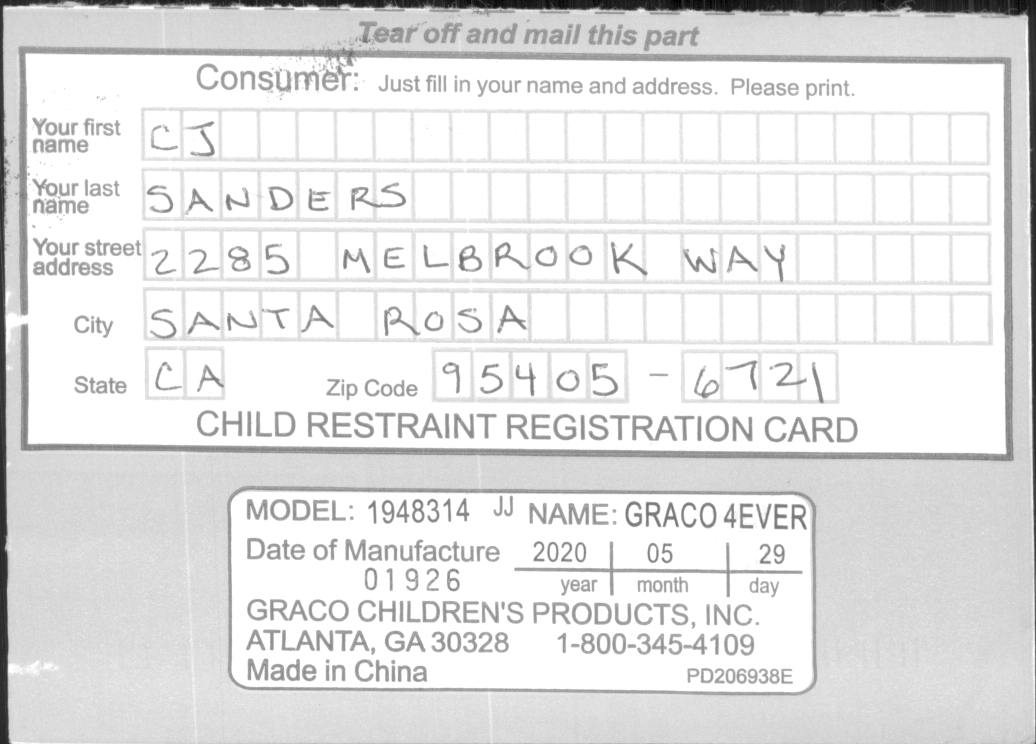 Tear off and mail this part
Consumer: Just fill in your name and address. Please print.
Your first name CJ
Your last name SANDERS
Your street address 2285 MELBROOK WAY
City SANTA ROSA
State CA Zip Code 95405 - 6721
CHILD RESTRAINT REGISTRATION CARD
MODEL: 1948314 JJ NAME: GRACO 4EVER
Date of Manufacture 2020 05 29
01926 year month day
GRACO CHILDREN'S PRODUCTS, INC.
ATLANTA, GA 30328 1-800-345-4109
Made in China PD206938E